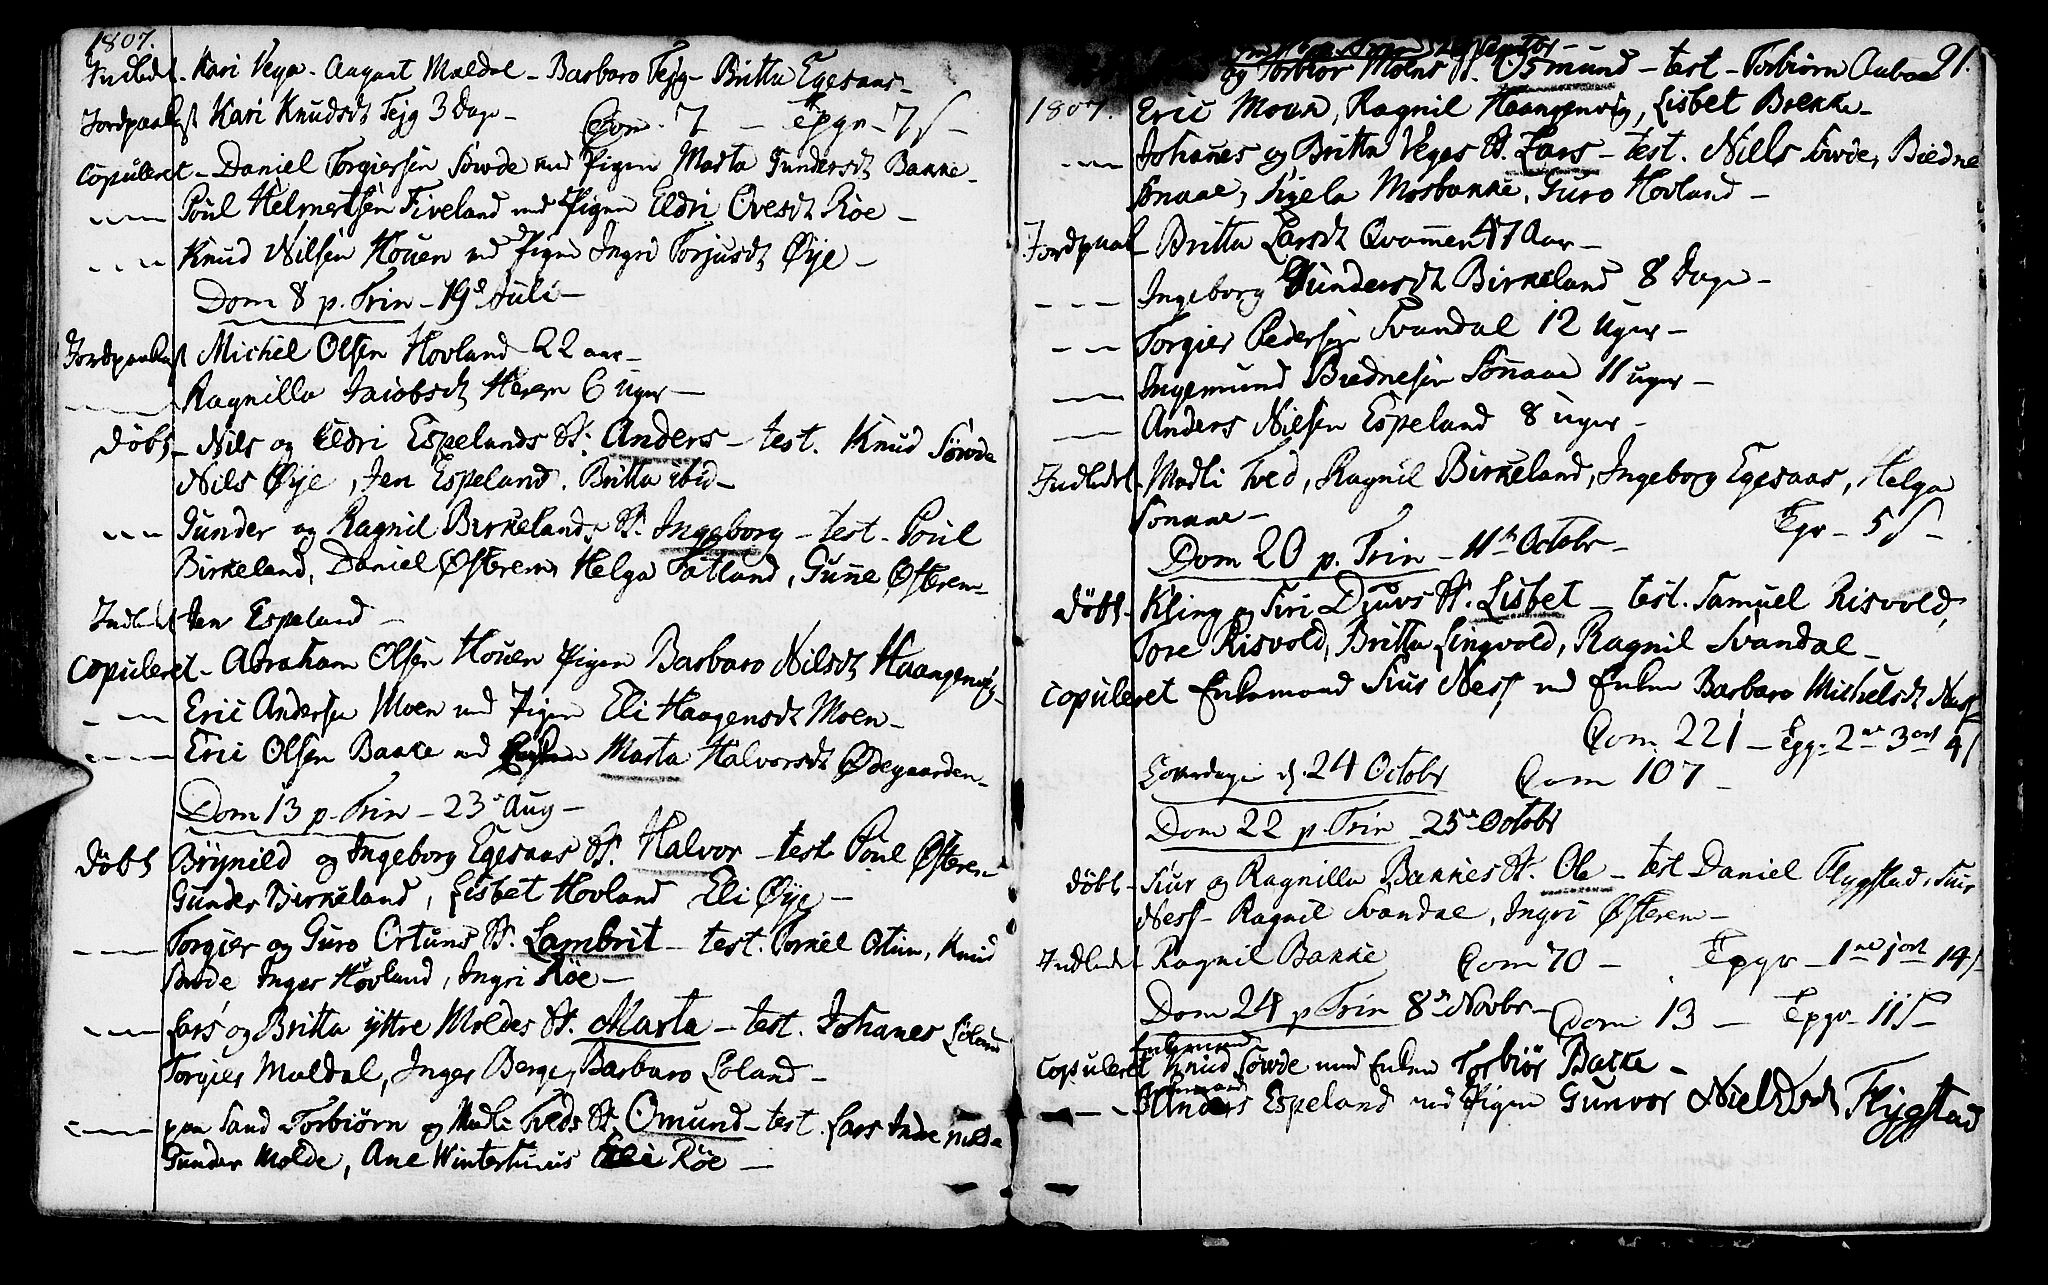 1807.
Indledt - Kari Vega - Aagaat Maldal - Barbaro Tejg - Britta Egesaas -
Jordpaakast Kari Knudsdt Tejg 3 Dage - Com. 7 - Epgr - 7 s -
Copuleret - Daniel Torgiersen Sowde med Pigen Marta Gundersdt Bakke -
- - - Poul Helmertsen Fiveland med Pigen Eldri Ovesdt Röe -
- - - Knud Nilsen Houen med Pigen Ingri Torjusdt Øye -
Dom 8 p. Trin - 19de Juli -
Jordpaakast Michel Olsen Hovland 22 aar -
- - - Ragnilla Jacobsdt Herem 6 uger -
döbt - Nils og Eldri Espelands B. Anders - test. Knud Söwde
Nils Øye, Jen Espeland. Britta ibid -
- - - Gunder og Ragnil Birkelands B. Ingeborg - test - Poul
Birkeland, Daniel Østerem, Helga Fatland, Gunne Østerem -
Indledt Jen Espeland -
Copuleret - Abraham Olsen Houen Pigen Barbaro Nilsdt Haangenvig -
- - - Eric Andersen Moen med Pigen Eli Haagensdt Moen -
- - - Eric Olsen Bakke med Marta Halvorsdt Ødegaarden -
Dom 13 p. Trin - 23de Aug -
döbt Brynild og Ingeborg Egesaas B. Halvor - test Poul Østerem
Gunder Birkeland, Lisbet Hovland Eli Øye -
- - - Torgier og Guro Ortuns B. Lambrit - test. Tornel Ortun, Knud
Sowde Inger Hovland, Ingri Röe -
- - - Lars og Britta yttre Moldes B. Marta - test. Johanes Loland
Torgies Maldal, Inger Berge, Barbaro Loland -
- - - paa Sand Torbiörn og Madli Tveds B. Omund - test. Lars Indre Molde
Gunder Molde, Ane Winterhuus Eli Röe -
91.
og Torbior Moens B. Osmund - test - Torbiörn Aaboe
1807. Eric Moen, Ragnil Haangenvig, Lisbet Brekke -
- - - Johanes og Britta Veges B. Lars - test. Nills Sowde, Biedne
Sonaae, Sigela Mosbakke, Guro Hovland -
Jordpaak - Britta Larsdt Qvammen 47 Aar -
- - - Ingeborg Gundersdt Birkeland 8 Dage -
- - - Torgier Pedersen Svandal 12 Uger -
- - - Ingemund Biednesen Sonaae 11 uger -
- - - Anders Nilsen Espeland 8 uger -
Indledt - Madli Tved, Ragnil Birkeland, Ingeborg Egesaas, Helga
Sonaae - Epgr - 5 s -
Dom 20 p. Trin - 11te Octobr -
döbt - Kling og Siri Djuvs B. Lisbet - test. Samuel Risvold,
Tore Risvold, Britta Lingvold, Ragnil Svandal -
Copuleret Enkemand Siur Ness med Enken Barbaro Michelsdt Ness
Com. 221 - Epgr. 2 3 ort 4 s
Löverdagen d. 24 Octobr Com 107 -
Dom 22 p. Trin 25de Octobr
döbt - Siur og Ragnilla Bakkes B. Ole - test Daniel Flygstad, Siur
Ness - Ragnil Svandal, Ingri Østerem -
Indledt - Ragnil Bakke Com 70 - Epgr - 1 1 ort 14 s -
Dom 24 p Trin 8de Novbr - Com 13 - Epgr - 11 s -
Enkemand
Copuleret Knud Söwde med Enken Torbiör Bakke -
- - - Anders Espeland med Pigen Gunvor Nielsdt Flygstad